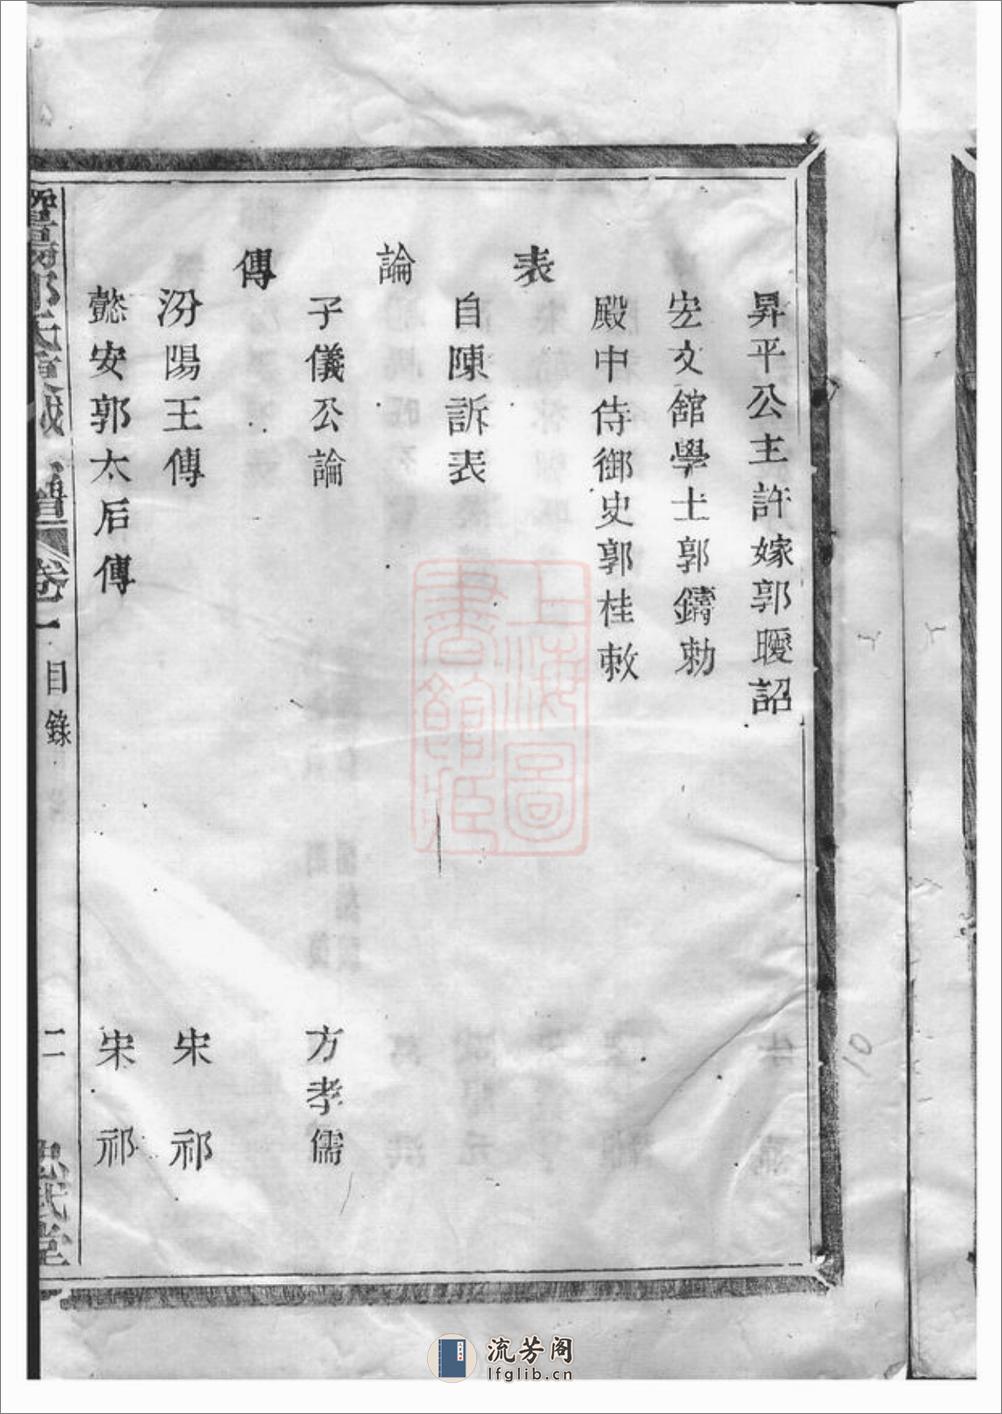 昇平公主許嫁郭曖詔
宏文舘學士郭鑄勅
殿中侍御史郭桂敕
表
自陳訴表
論
子儀公論 方孝儒
傳
汾陽王傳 宋祁
懿安郭太后傳 宋祁
郭氏 卷一 目錄 二 忠武堂
上海圖書館藏
10
流芳阁
lfglib.cn